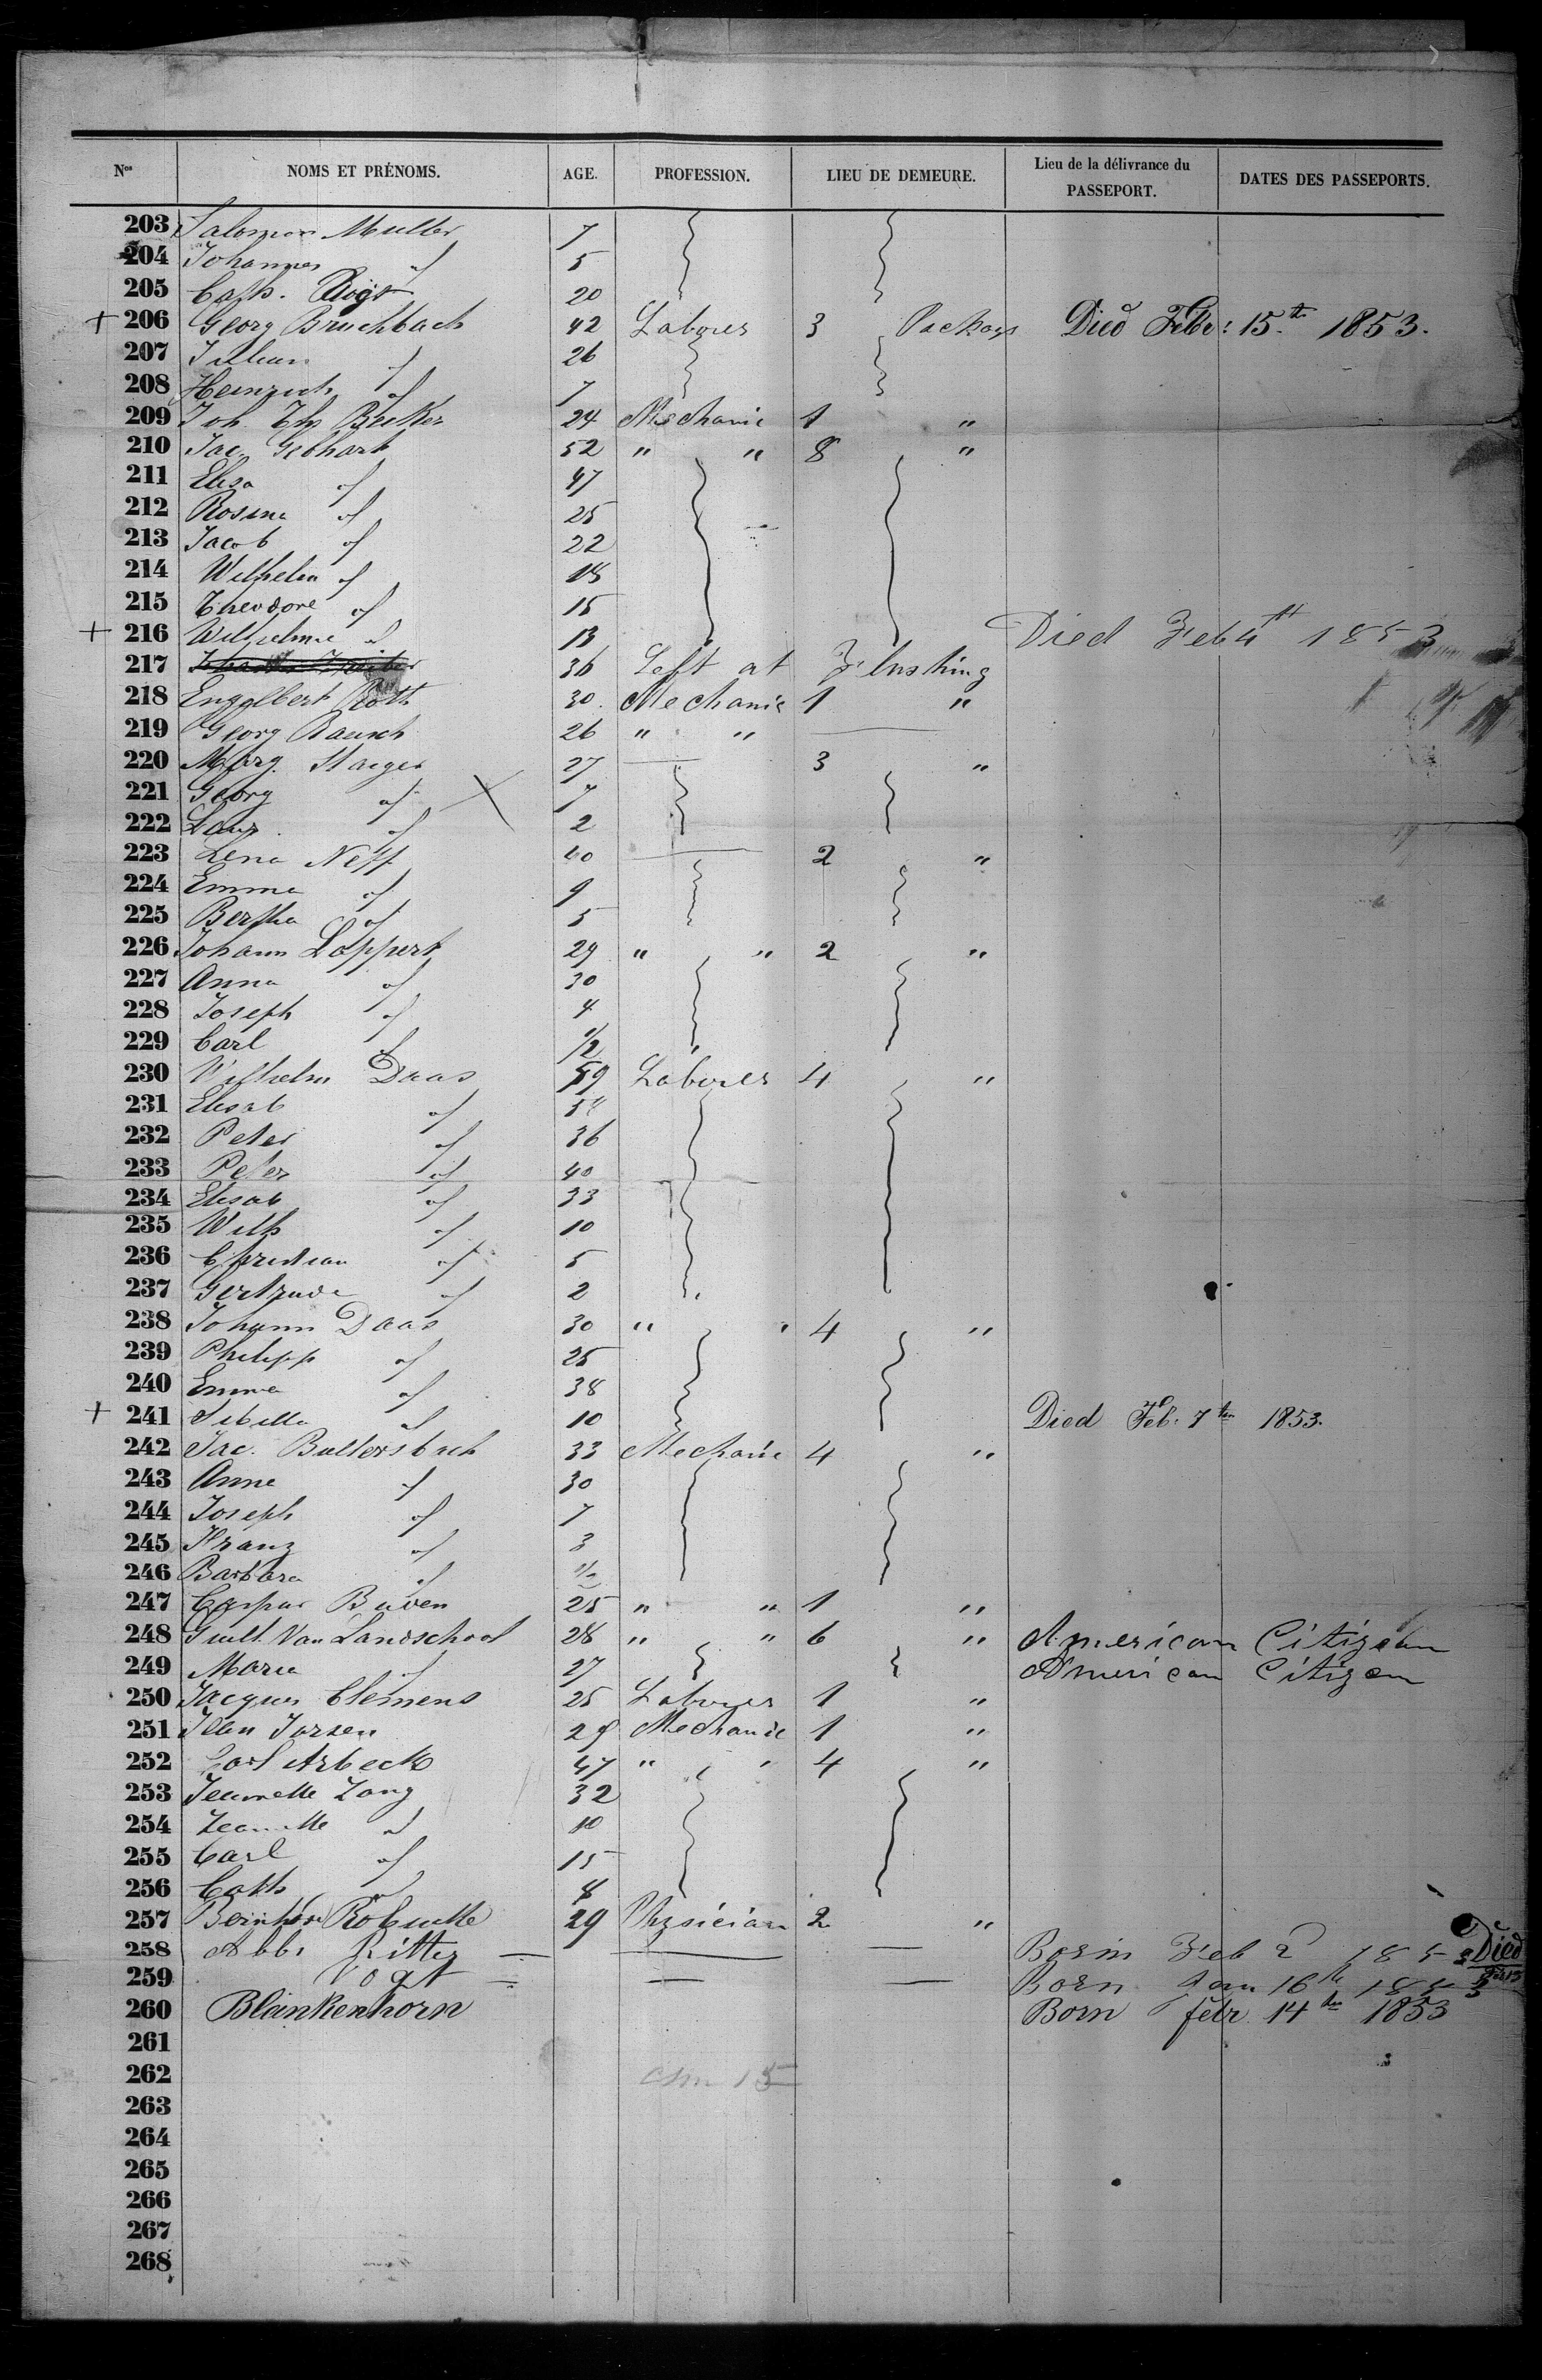 Nos NOMS ET PRÉNOMS. AGE. PROFESSION. LIEU DE DEMEURE. Lieu de la délivrance du PASSEPORT. DATES DES PASSEPORTS.
203 Salomon Muller 7
204 Johannes " 5
205 Cath. 20
+ 206 Georg Bruchbach 42 Labourer 3 Packags Died Febr: 15.th 1853.
207 " 26
208 Heinrich " 7
209 Joh. Ths Becker 24 Mechanic 1 "
210 Jac. Gebhart 52 " " 8 "
211 Elisa " 47
212 Rosina " 25
213 Jacob " 22
214 Wilhelm " 18
215 Theodore " 15
+ 216 Wilhelmie " 13 Died Feb 4th 1853
217 36 Left at Flushing
218 Engelbert Roth 30. Mechanic 1 "
219 Georg Bausch 26 " "
220 Marg. Staiger 27 3 "
221 Georg " 7
222 " 2
223 Lena Neff 40 2 "
224 Emma " 9
225 Bertha " 5
226 Johann Loppert 29 " " 2 "
227 Anna " 30
228 Joseph " 4
229 Carl " 1/2
230 Wilhelm Daas 59 Labourer 4 "
231 Elisab "
232 Peter " 36
233 Peter " 40
234 Elisab " 33
235 Wilh " 10
236 Christian " 5
237 Gertrude " 2
238 Johann Daas 30 " " 4 "
239 Philipp " 25
240 Emma " 38
+ 241 Sibilla " 10 Died Feb. 7ten 1853.
242 Jac. Bullersbach 33 Mechanic 4 "
243 Anna " 30
244 Joseph " 7
245 Franz " 3
246 Barbara " 1/2
247 Caspar Buven 25 " " 1 "
248 Guill. Van Landschoot 28 " " 6 " American Citizen
249 Maria " 27 American Citizen
250 Jacques Clemens 25 Labourer 1 "
251 Jean Jorsen 29 Mechanic 1 "
252 Carl Arbeck 47 " " 4 "
253 Jeannette Zang 32
254 Jeannette " 10
255 Carl " 15
256 Cath " 8
257 29 Physician 2 "
258 Ritter Born Feb 2 1853 Died
259 Vogt Born Jan 16th 1853
260 Blankenhorn Born febr. 14ten 1853
261
262
263
264
265
266
267
268